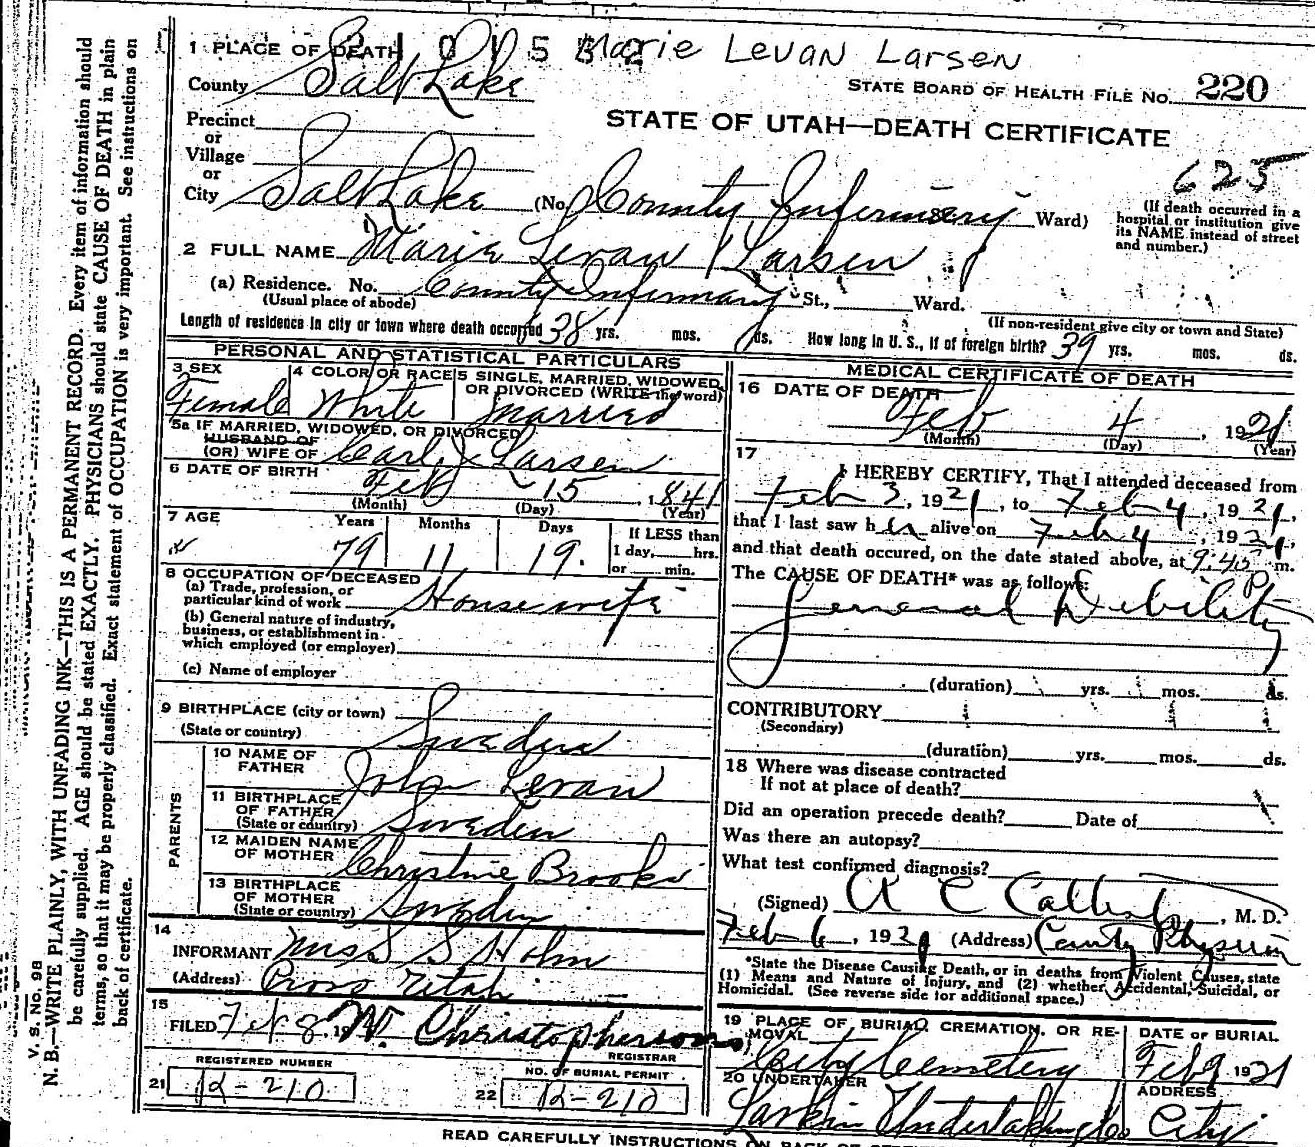 Marie Levan Larsen
1 PLACE OF DEATH
County Salt Lake
STATE BOARD OF HEALTH FILE NO. 220
STATE OF UTAH—DEATH CERTIFICATE
Precinct
or
Village
or
City Salt Lake (No. County Infirmary Ward)
625
(If death occurred in a
hospital or institution give
its NAME instead of street
and number.)
2 FULL NAME Marie Levan Larsen
(a) Residence. No. County Infirmary St., Ward.
(Usual place of abode)
(If non-resident give city or town and State)
Length of residence in city or town where death occurred 38 yrs. mos. ds. How long in U. S., if of foreign birth? 39 yrs. mos. ds.
PERSONAL AND STATISTICAL PARTICULARS
3 SEX
Female
4 COLOR OR RACE
White
5 SINGLE, MARRIED, WIDOWED,
OR DIVORCED (WRITE the word)
Married
5a IF MARRIED, WIDOWED, OR DIVORCED
HUSBAND OF
(OR) WIFE OF Carl J Larsen
6 DATE OF BIRTH Feb 15, 1841
(Month) (Day) (Year)
7 AGE Years Months Days If LESS than
79 11 19. 1 day, hrs.
or min.
8 OCCUPATION OF DECEASED
(a) Trade, profession, or
particular kind of work Housewife
(b) General nature of industry,
business, or establishment in
which employed (or employer)
(c) Name of employer
9 BIRTHPLACE (city or town)
(State or country) Sweden
PARENTS
10 NAME OF
FATHER John Levan
11 BIRTHPLACE
OF FATHER
(State or country) Sweden
12 MAIDEN NAME
OF MOTHER Christine Brooks
13 BIRTHPLACE
OF MOTHER
(State or country) Sweden
14
INFORMANT S S Holm
(Address) Provo Utah
15
FILED Feb 8, 19 W. Christopherson
REGISTRAR
REGISTERED NUMBER
21 12-210
NO. OF BURIAL PERMIT
22 12-210
MEDICAL CERTIFICATE OF DEATH
16 DATE OF DEATH
Feb 4, 1921
(Month) (Day) (Year)
17
I HEREBY CERTIFY, That I attended deceased from
Feb 3, 1921, to Feb 4, 1921,
that I last saw her alive on Feb 4, 1921,
and that death occured, on the date stated above, at 9:45 P m.
The CAUSE OF DEATH* was as follows:
General Debility
(duration) yrs. mos. ds.
CONTRIBUTORY
(Secondary)
(duration) yrs. mos. ds.
18 Where was disease contracted
If not at place of death?
Did an operation precede death? Date of
Was there an autopsy?
What test confirmed diagnosis?
(Signed) , M. D.
Feb 6, 1921 (Address) County Physician
*State the Disease Causing Death, or in deaths from Violent Causes, state
(1) Means and Nature of Injury, and (2) whether Accidental, Suicidal, or
Homicidal. (See reverse side for additional space.)
19 PLACE OF BURIAL, CREMATION, OR RE-
MOVAL
City Cemetery
DATE OF BURIAL
Feb 9 1921
20 UNDERTAKER
Larkin Undertaking Co
ADDRESS
City
READ CAREFULLY INSTRUCTIONS ON BACK OF
V. S. No. 98
N. B.—WRITE PLAINLY, WITH UNFADING INK—THIS IS A PERMANENT RECORD. Every item of information should
be carefully supplied. AGE should be stated EXACTLY. PHYSICIANS should state CAUSE OF DEATH in plain
terms, so that it may be properly classified. Exact statement of OCCUPATION is very important. See instructions on
back of certificate.